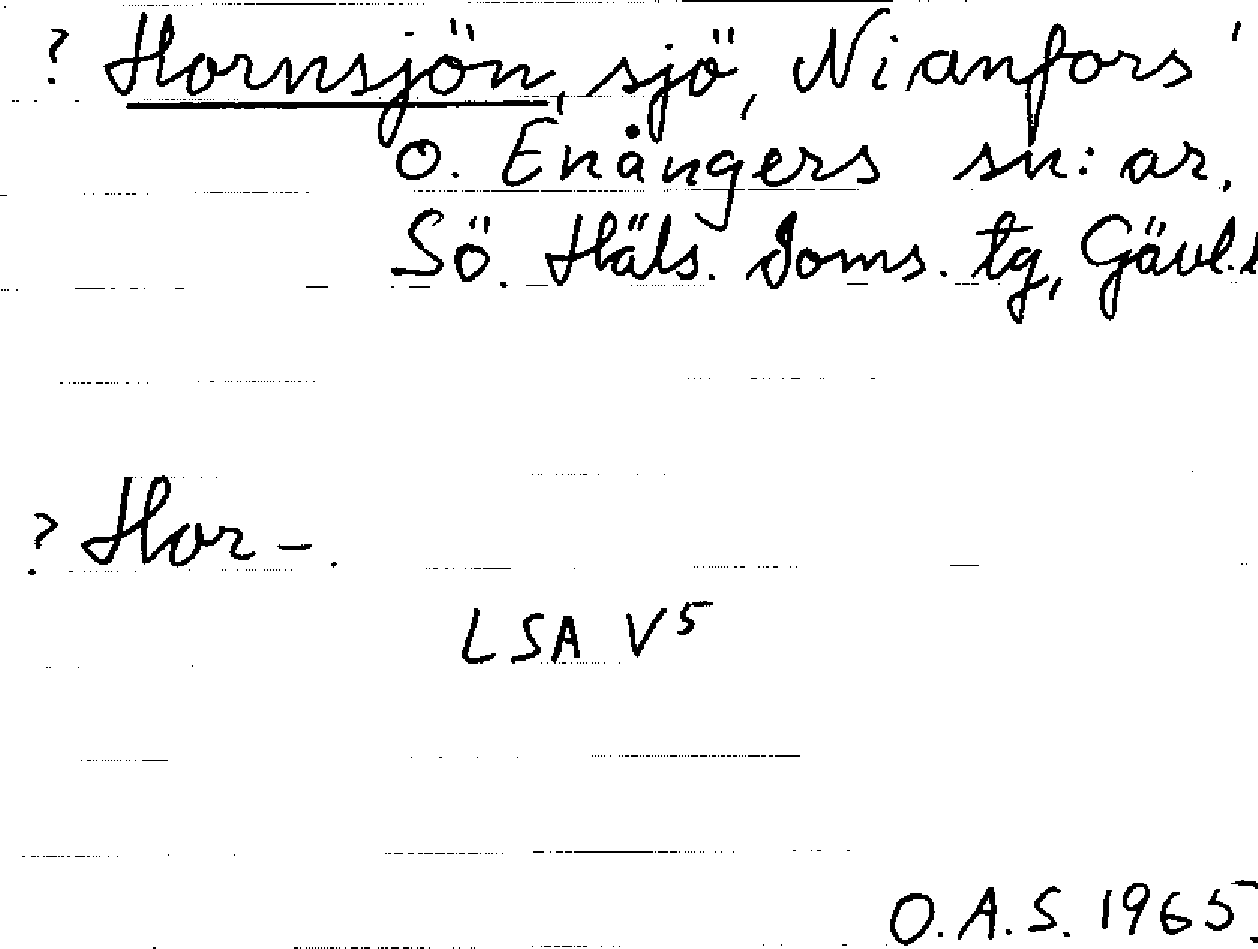 ? Hornsjön, sjö, Nianfors
o. Enångers sn:ar,
Sö. Häls. Doms. tg, Gävl.l
? Hor-.
LSA V5
O.A.S. 1965